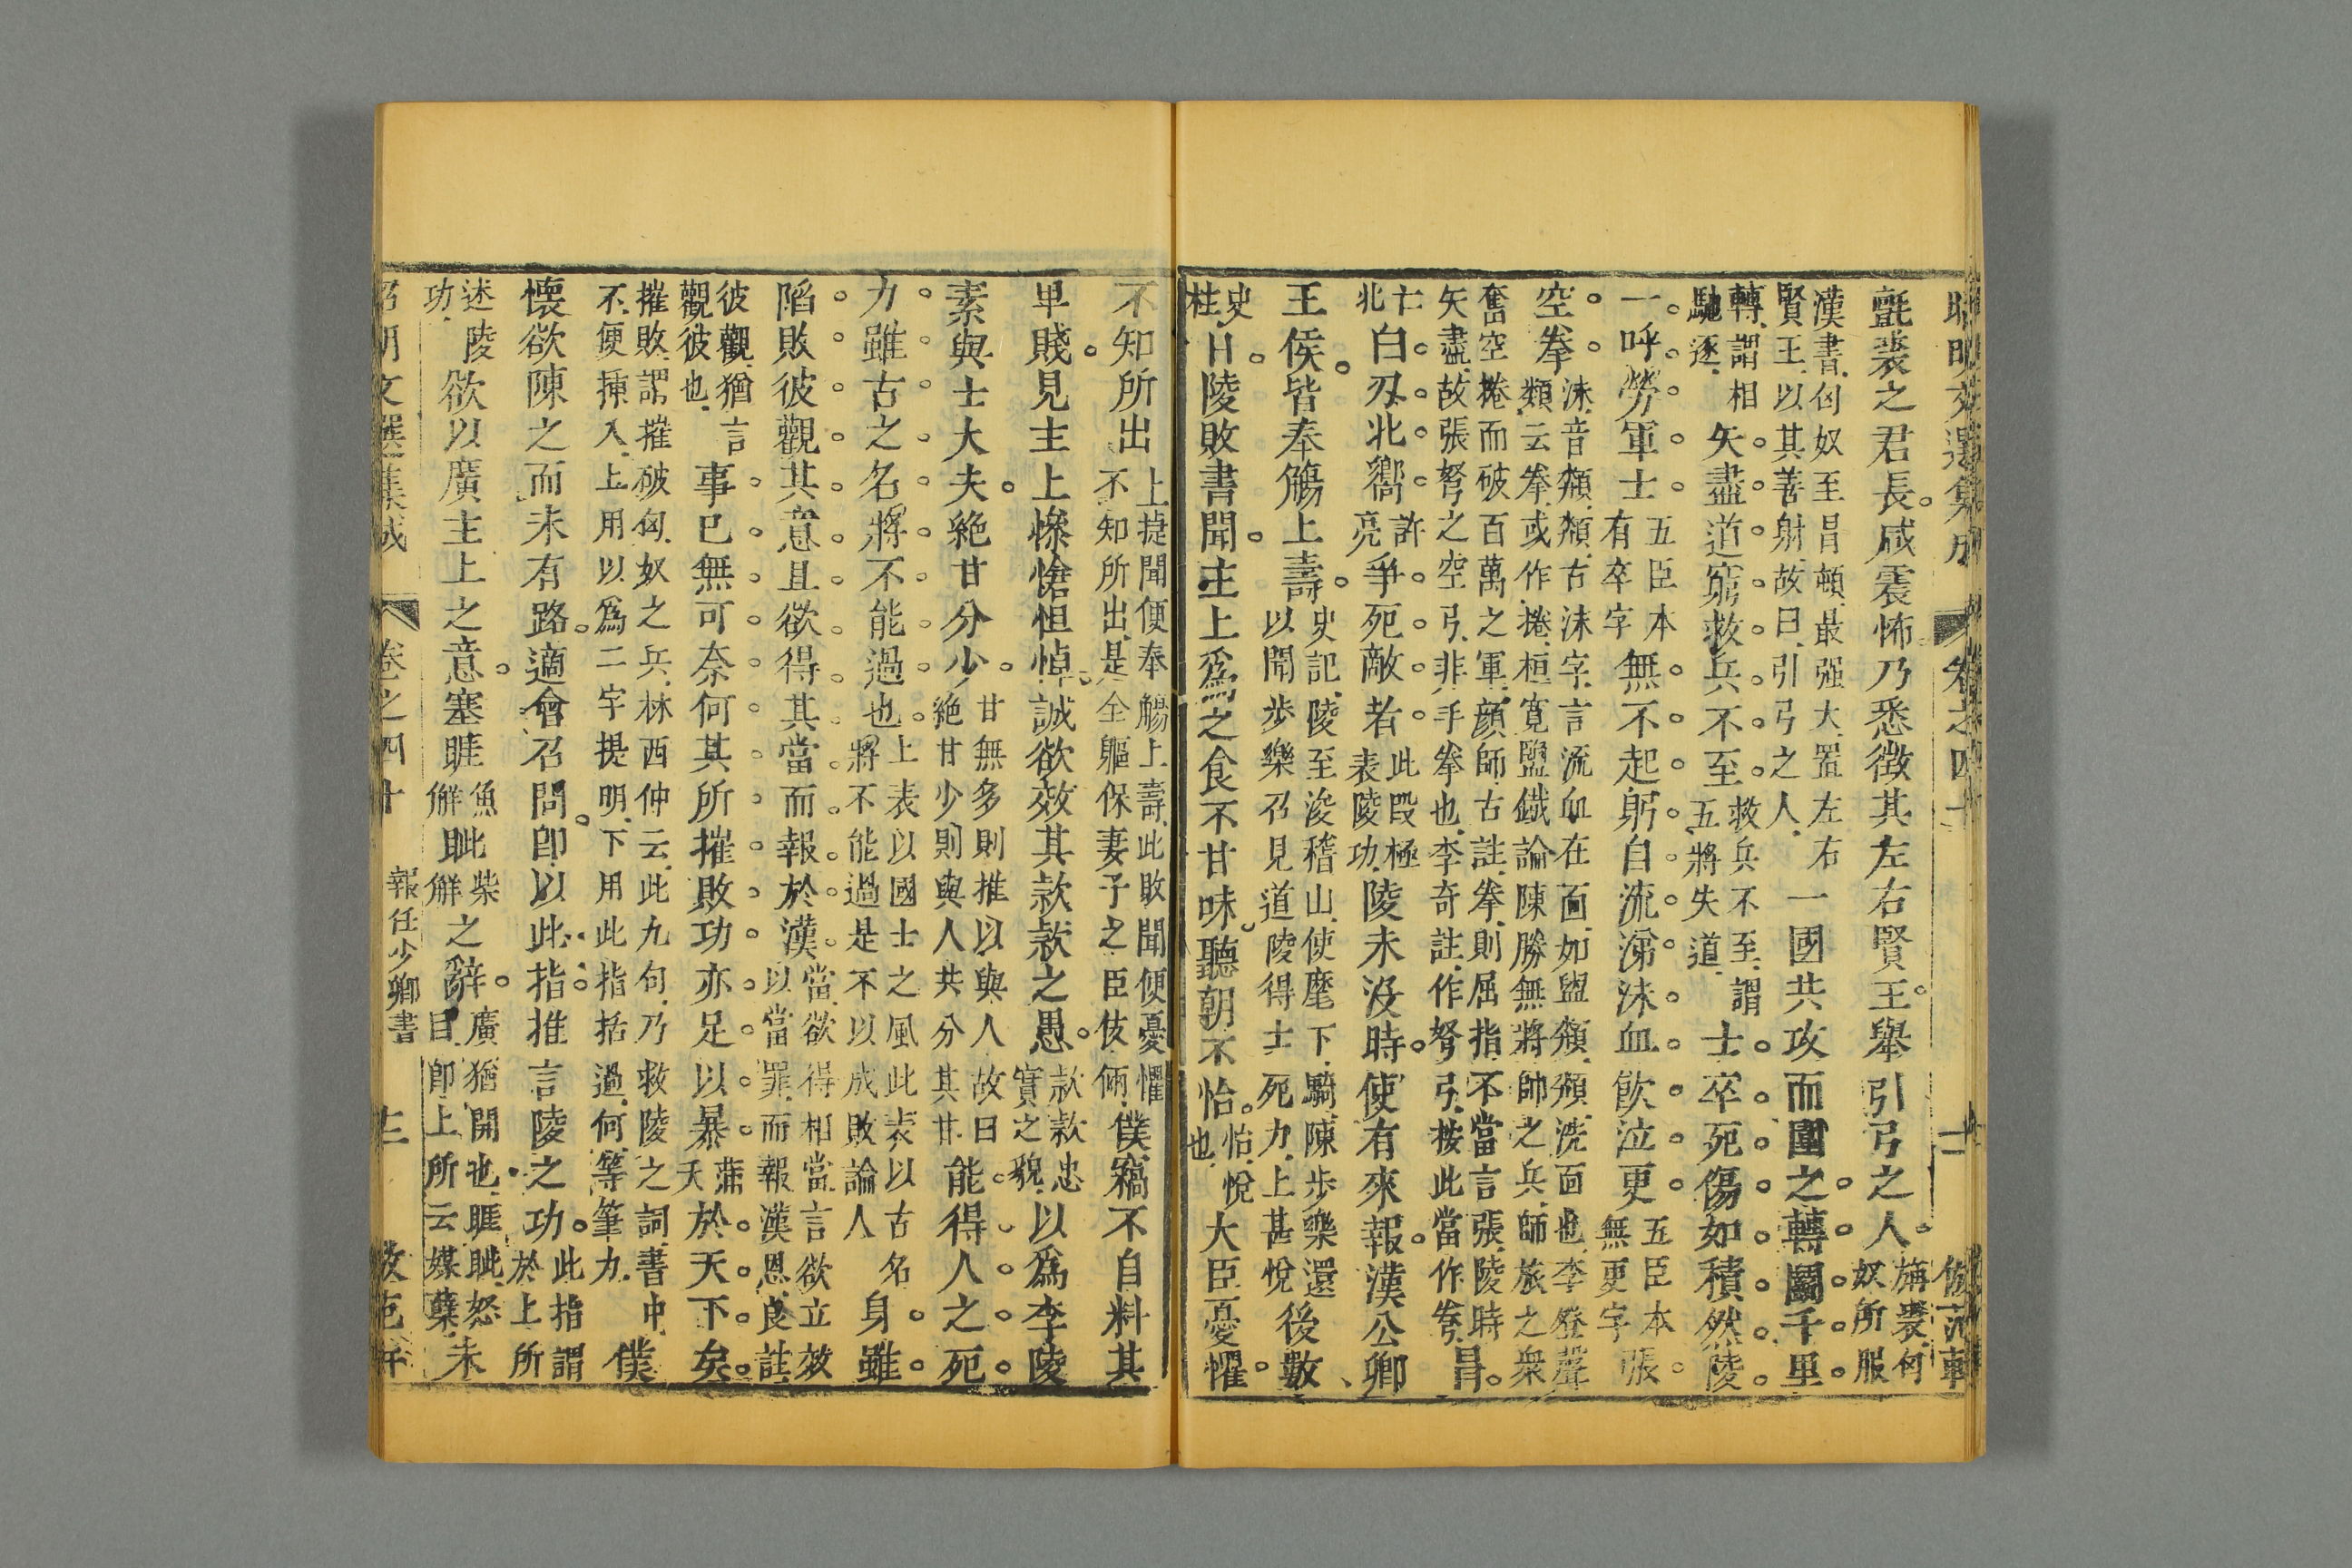 氈裘之君長咸震怖乃悉徵其左右賢王舉引弓之人旃裘匈奴所服
漢書匈奴至冒頓最强大置左右賢王以其善射故曰引弓之人一國共攻而圍之轉鬭千里
轉謂相馳逐矢盡道窮救兵不至救兵不至謂五將失道士卒死傷如積然陵
一呼勞軍士五臣本有卒字無不起躬自流涕沬血飲泣更五臣本無更字張
空拳沬音頮頮古沬字言流血在面如盥頮頮洗面也李登聲類云拳或作捲桓寬鹽鐵論陳勝無將帥之兵師旅之衆
奮空捲而破百萬之軍顏師古註拳則屈指不當言張陵時矢盡故張弩之空弓非手拳也李奇註作弩弓按此當作弮冒
白刃北嚮許亮爭死敵者此段極表陵功陵未沒時使有來報漢公卿
王侯皆奉觴上壽史記陵至浚稽山使麾下騎陳步樂還以聞步樂召見道陵得士死力上甚悅後數
日陵敗書聞主上爲之食不甘味聽朝不怡怡悅也大臣憂懼
不知所出上捷聞便奉觴上壽此敗聞便憂懼不知所出是全軀保妻子之臣伎倆僕竊不自料其
卑賤見主上慘愴怛悼誠欲效其款款之愚款款忠實之貌以爲李陵
素與士大夫絶甘分少甘無多則推以與人故曰絶甘少則與人共分其甘能得人之死
力雖古之名將不能過也上表以國士之風此表以古名將不能過是不以成敗論人身雖
陷敗彼觀其意且欲得其當而報於漢當欲得相當言欲立效以當罪而報漢恩良註
彼觀猶言觀彼也事已無可奈何其所摧敗功亦足以暴蒲天於天下矣
摧敗謂摧破匈奴之兵林西仲云此九句乃救陵之詞書中不便揷入上用以爲二字提明下用此指括過何等筆力僕
懷欲陳之而未有路適會召問卽以此指推言陵之功此指謂於上所
述陵功欲以廣主上之意塞睚魚懈眦柴懈之辭廣猶開也睚眦怒目卽上所云媒孽未
昭明文選集成 卷之四十 報任少卿書